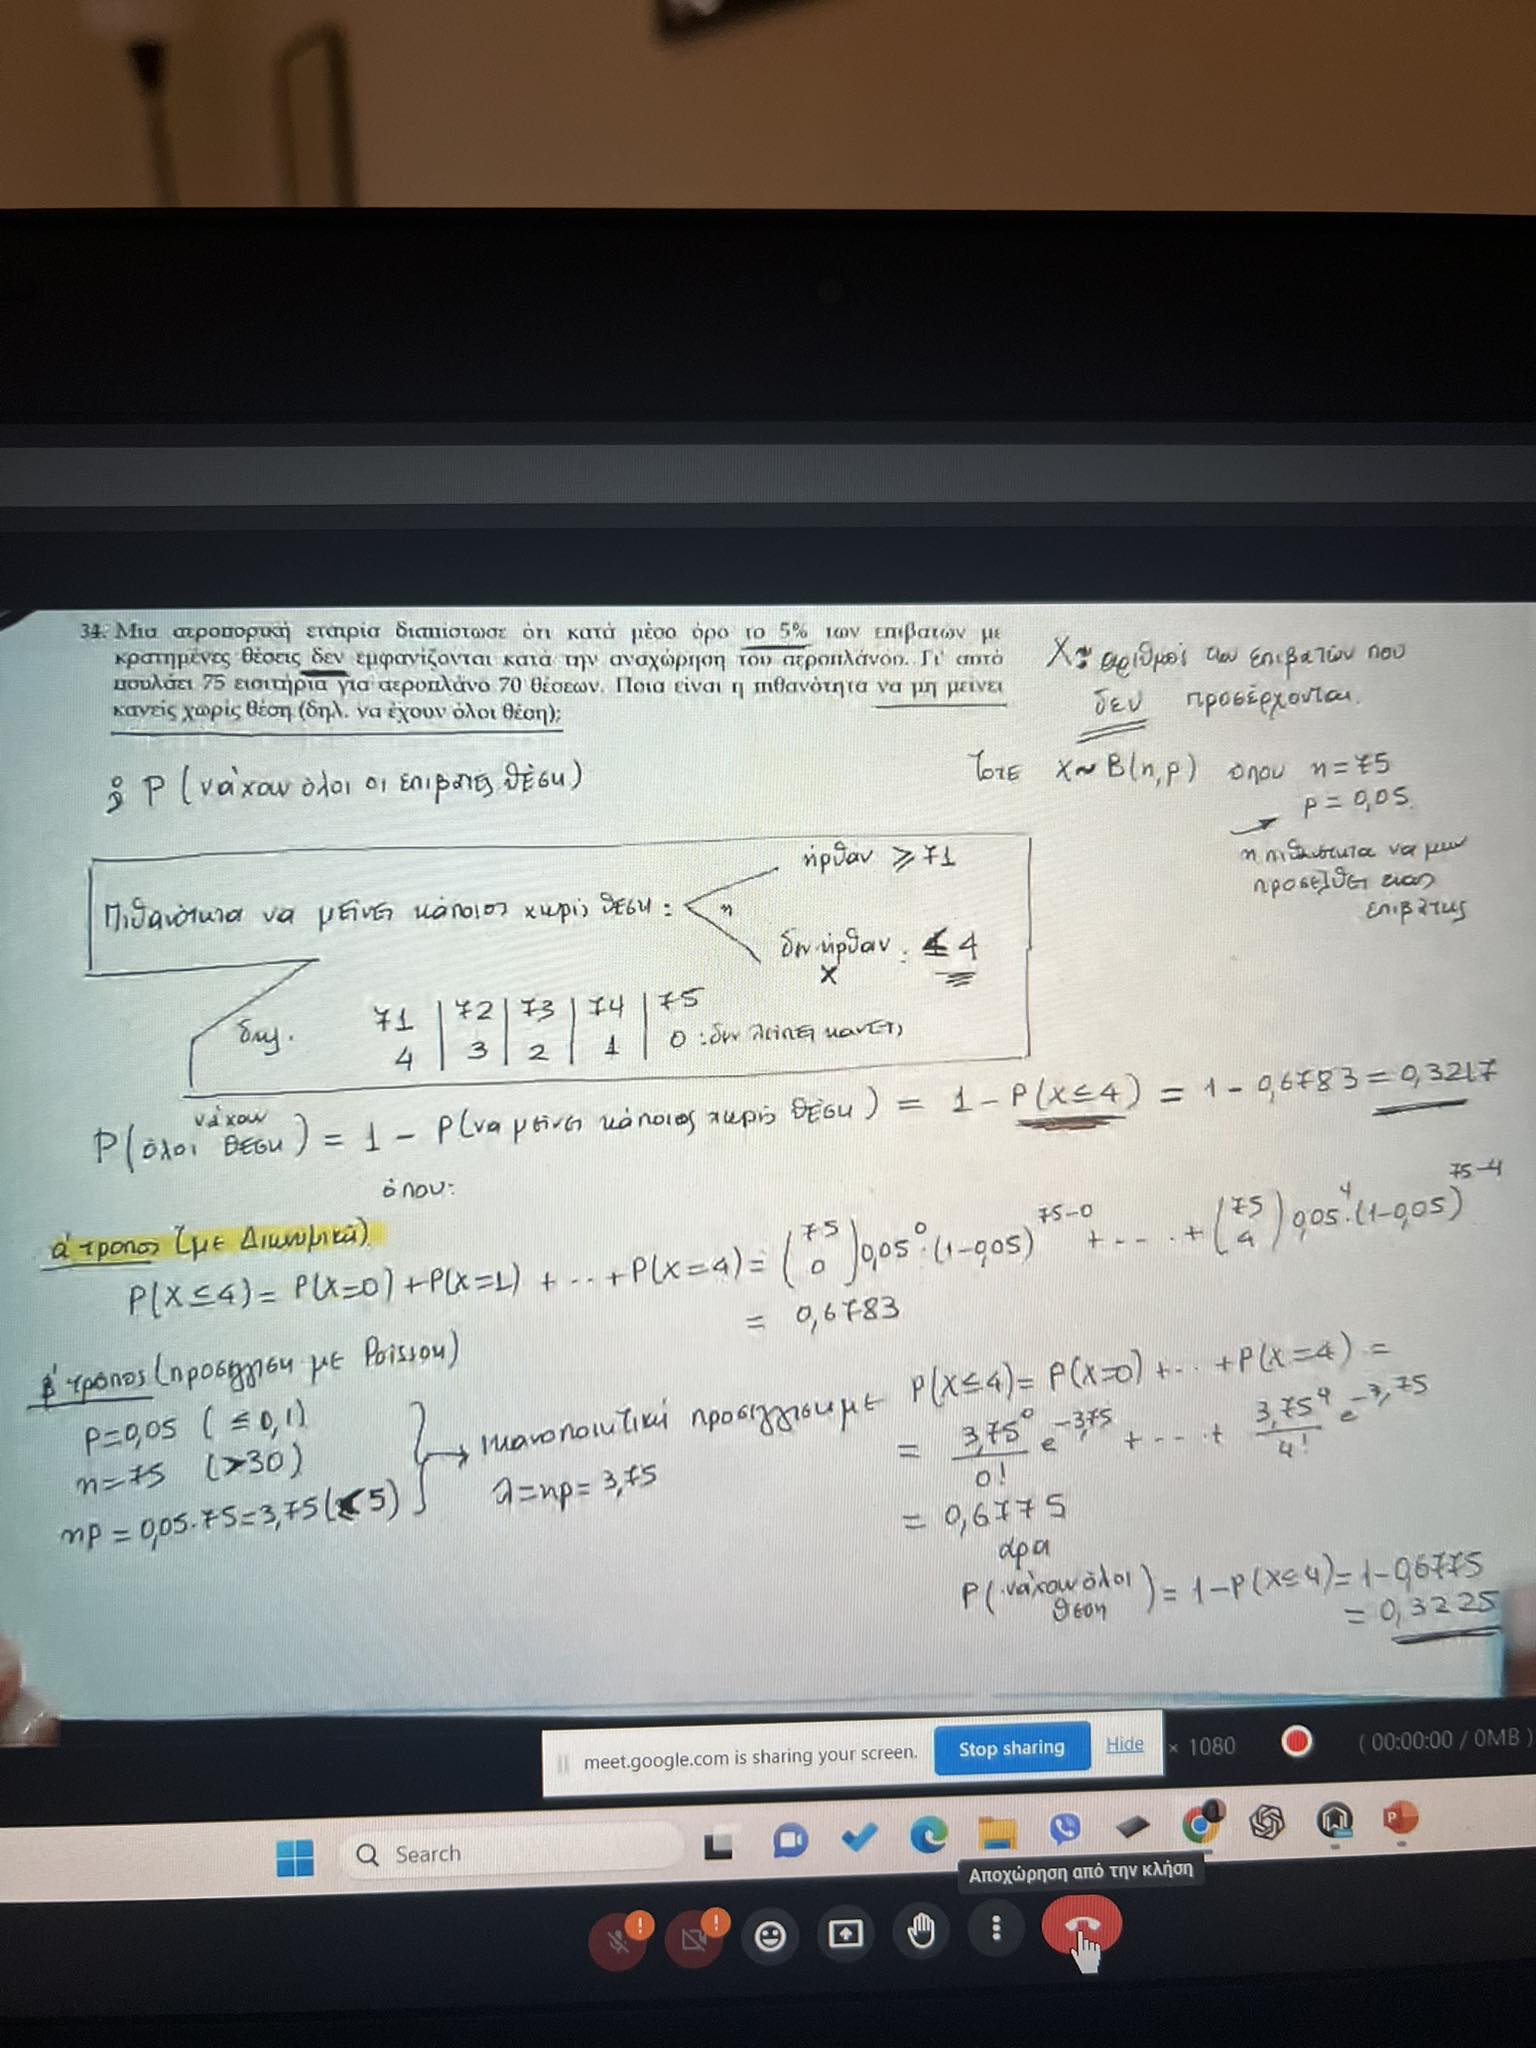 34. Μια αεροπορική εταιρία διαπίστωσε ότι κατά μέσο όρο το 5% των επιβατών με
κρατημένες θέσεις δεν εμφανίζονται κατά την αναχώρηση του αεροπλάνου. Γι' αυτό
πουλάει 75 εισιτήρια για αεροπλάνο 70 θέσεων. Ποια είναι η πιθανότητα να μη μείνει
κανείς χωρίς θέση (δηλ. να έχουν όλοι θέση);
X: αριθμοί των επιβατών που
δεν προσέρχονται.
Τότε X~B(n,p) όπου n=75
p=0,05
η πιθανότητα να μην
προσέλθει ένας
επιβάτης
; P(νά'χουν όλοι οι επιβάτες θέση)
Πιθανότητα να μείνει κάποιος χωρίς θέση:
ήρθαν ≥71
ή
δεν ήρθαν: ≤4
X
δηλ.
71 | 72 | 73 | 74 | 75
4 | 3 | 2 | 1 | 0 : δεν λείπει κανείς
P(όλοι νά'χουν θέση) = 1 - P(να μείνει κάποιος χωρίς θέση) = 1 - P(X≤4) = 1 - 0,6783 = 0,3217
όπου:
α' τρόπος (με Διωνυμική)
P(X≤4) = P(X=0) + P(X=1) + ... + P(X=4) = (75 0) 0,05^0 · (1-0,05)^75-0 + ... + (75 4) 0,05^4 · (1-0,05)^75-4
= 0,6783
β' τρόπος (προσέγγιση με Poisson)
p=0,05 (≤0,1)
n=75 (>30)
np = 0,05·75 = 3,75 (<5)
→ ικανοποιητική προσέγγιση με
λ=np=3,75
P(X≤4) = P(X=0) + ... + P(X=4) =
= 3,75^0/0! e^-3,75 + ... + 3,75^4/4! e^-3,75
= 0,6775
άρα
P(νά'χουν όλοι θέση) = 1 - P(X≤4) = 1 - 0,6775
= 0,3225
meet.google.com is sharing your screen.
Stop sharing
Hide
× 1080
(00:00:00 / 0MB)
Search
Αποχώρηση από την κλήση